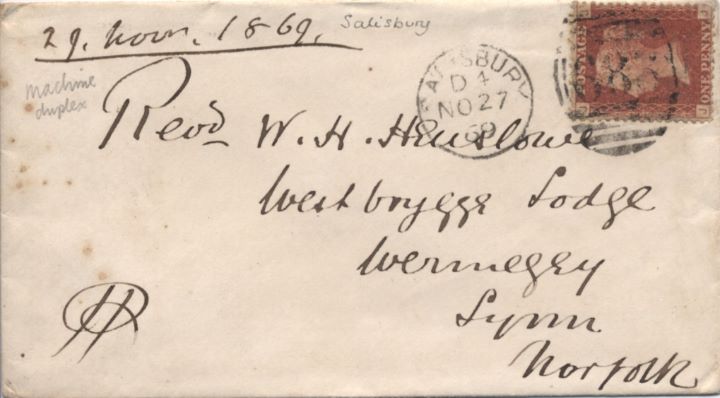 29. Novr. 1869.
Salisbury
machine
duplex
SALISBURY
D 4
NO 27
69
POSTAGE
ONE PENNY
J
J
Revd W. H. Henslowe
Westbrygge Lodge
Wormegey
Lynn
Norfolk